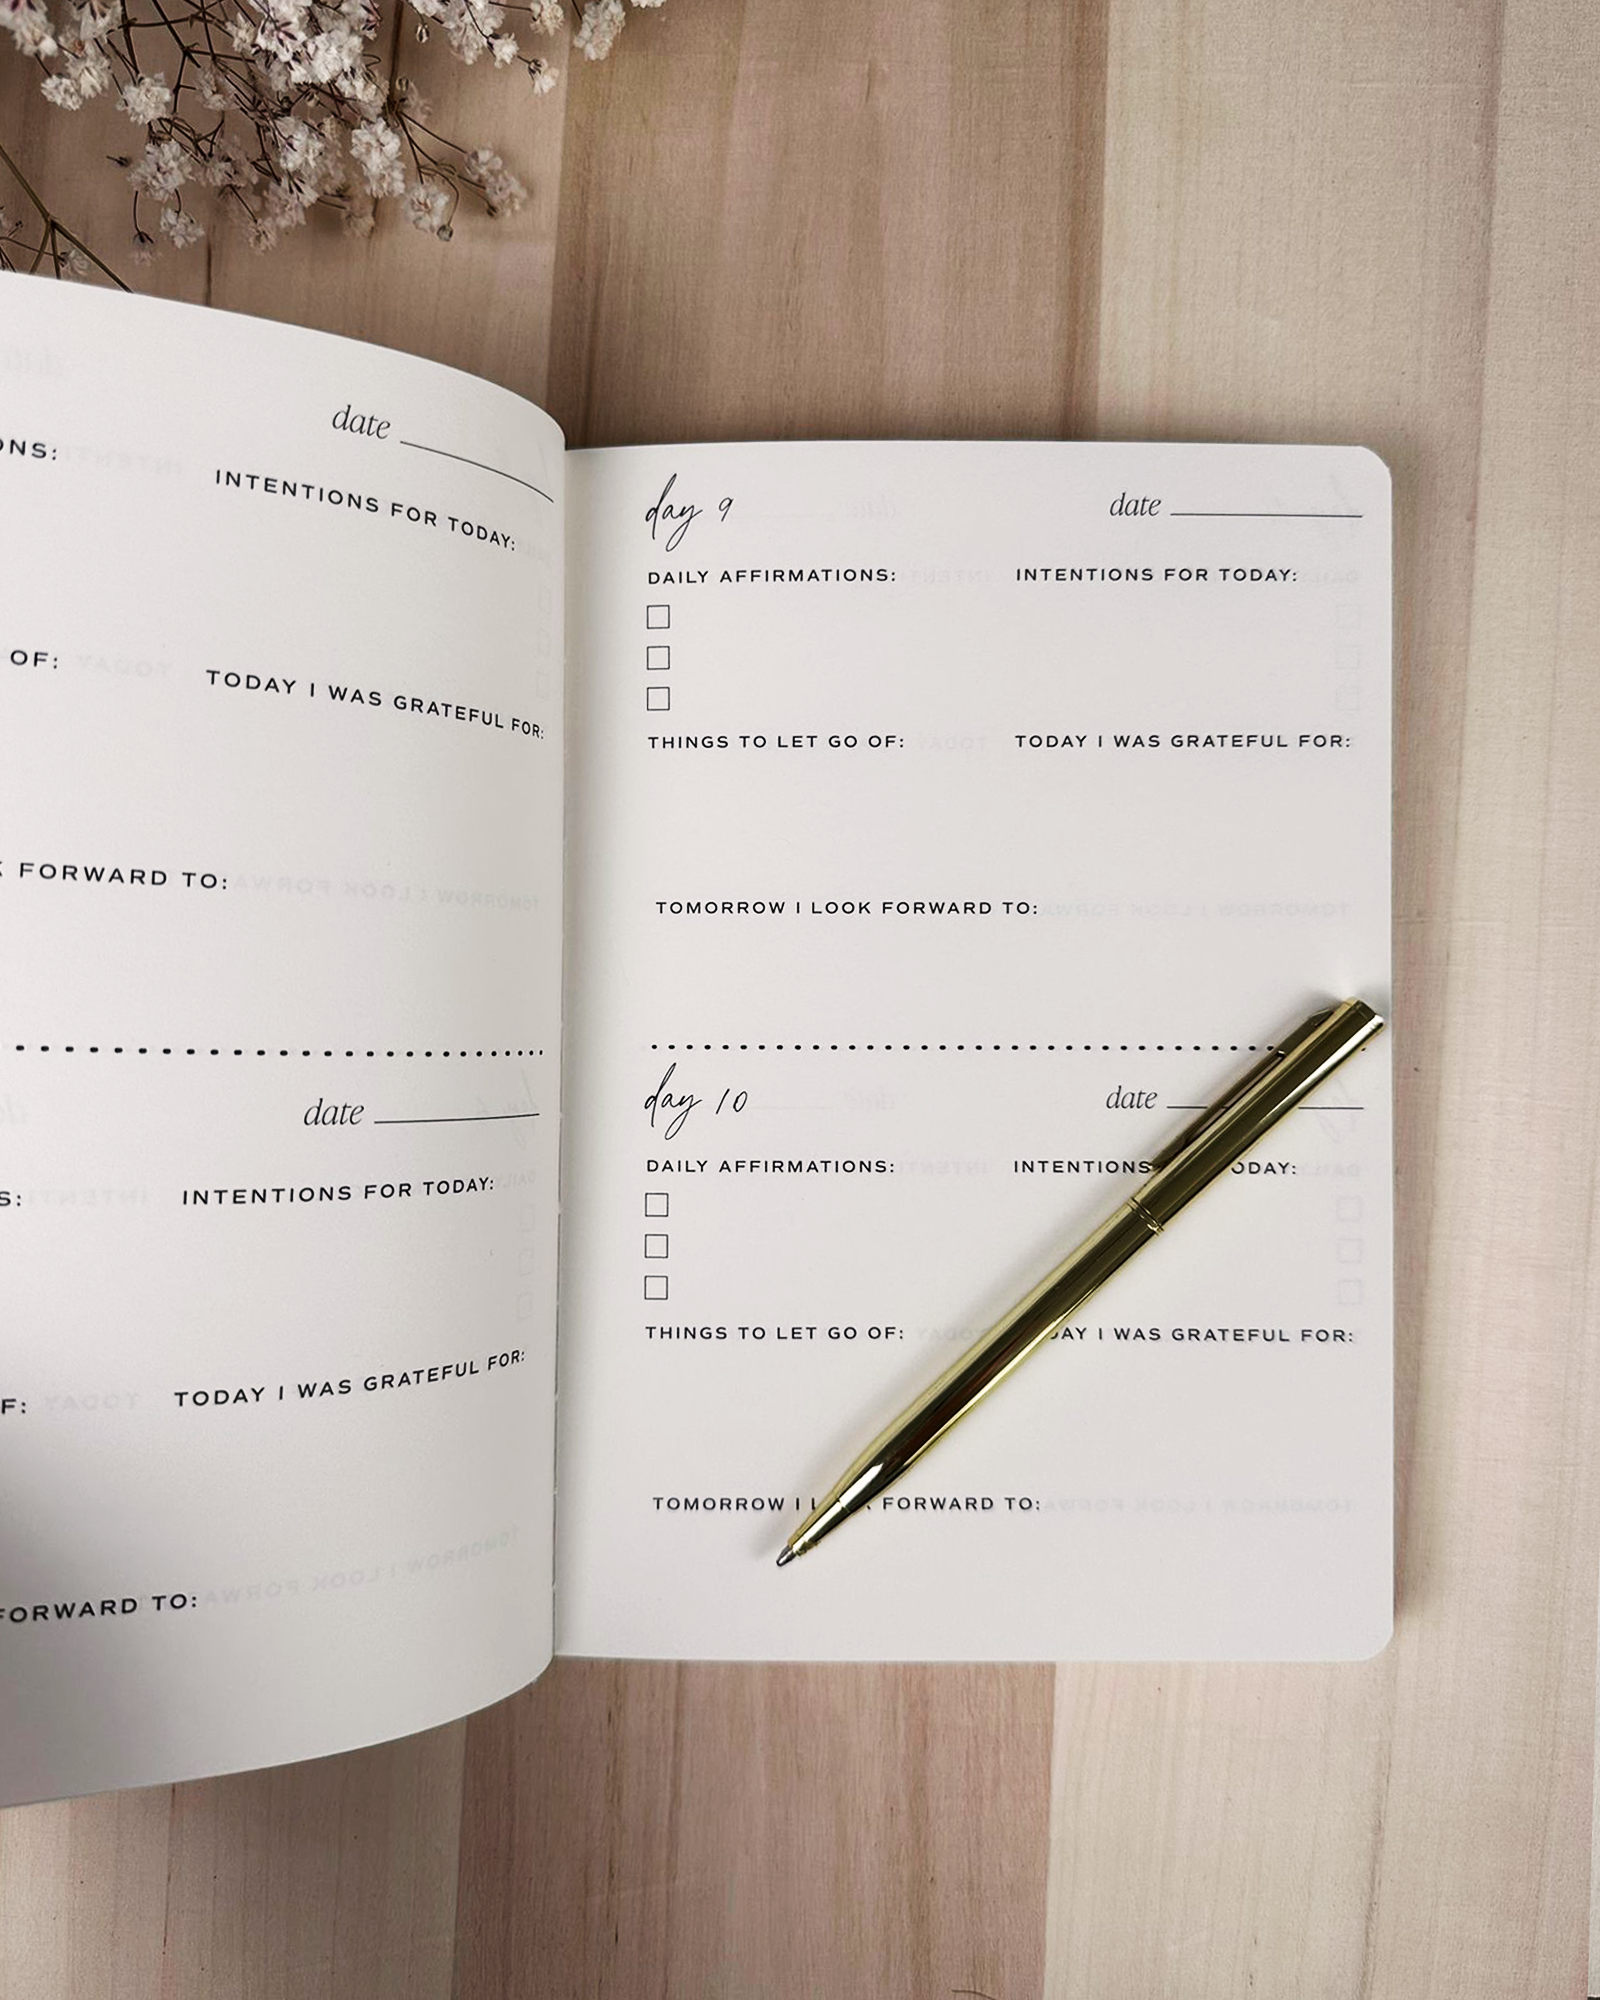 date
ONS:
INTENTIONS FOR TODAY:
OF:
TODAY I WAS GRATEFUL FOR:
K FORWARD TO:
date
S:
INTENTIONS FOR TODAY:
F:
TODAY I WAS GRATEFUL FOR:
FORWARD TO:
day 9 date
DAILY AFFIRMATIONS: INTENTIONS FOR TODAY:
THINGS TO LET GO OF: TODAY I WAS GRATEFUL FOR:
TOMORROW I LOOK FORWARD TO:
day 10 date
DAILY AFFIRMATIONS: INTENTIONS ODAY:
THINGS TO LET GO OF: DAY I WAS GRATEFUL FOR:
TOMORROW I L K FORWARD TO: